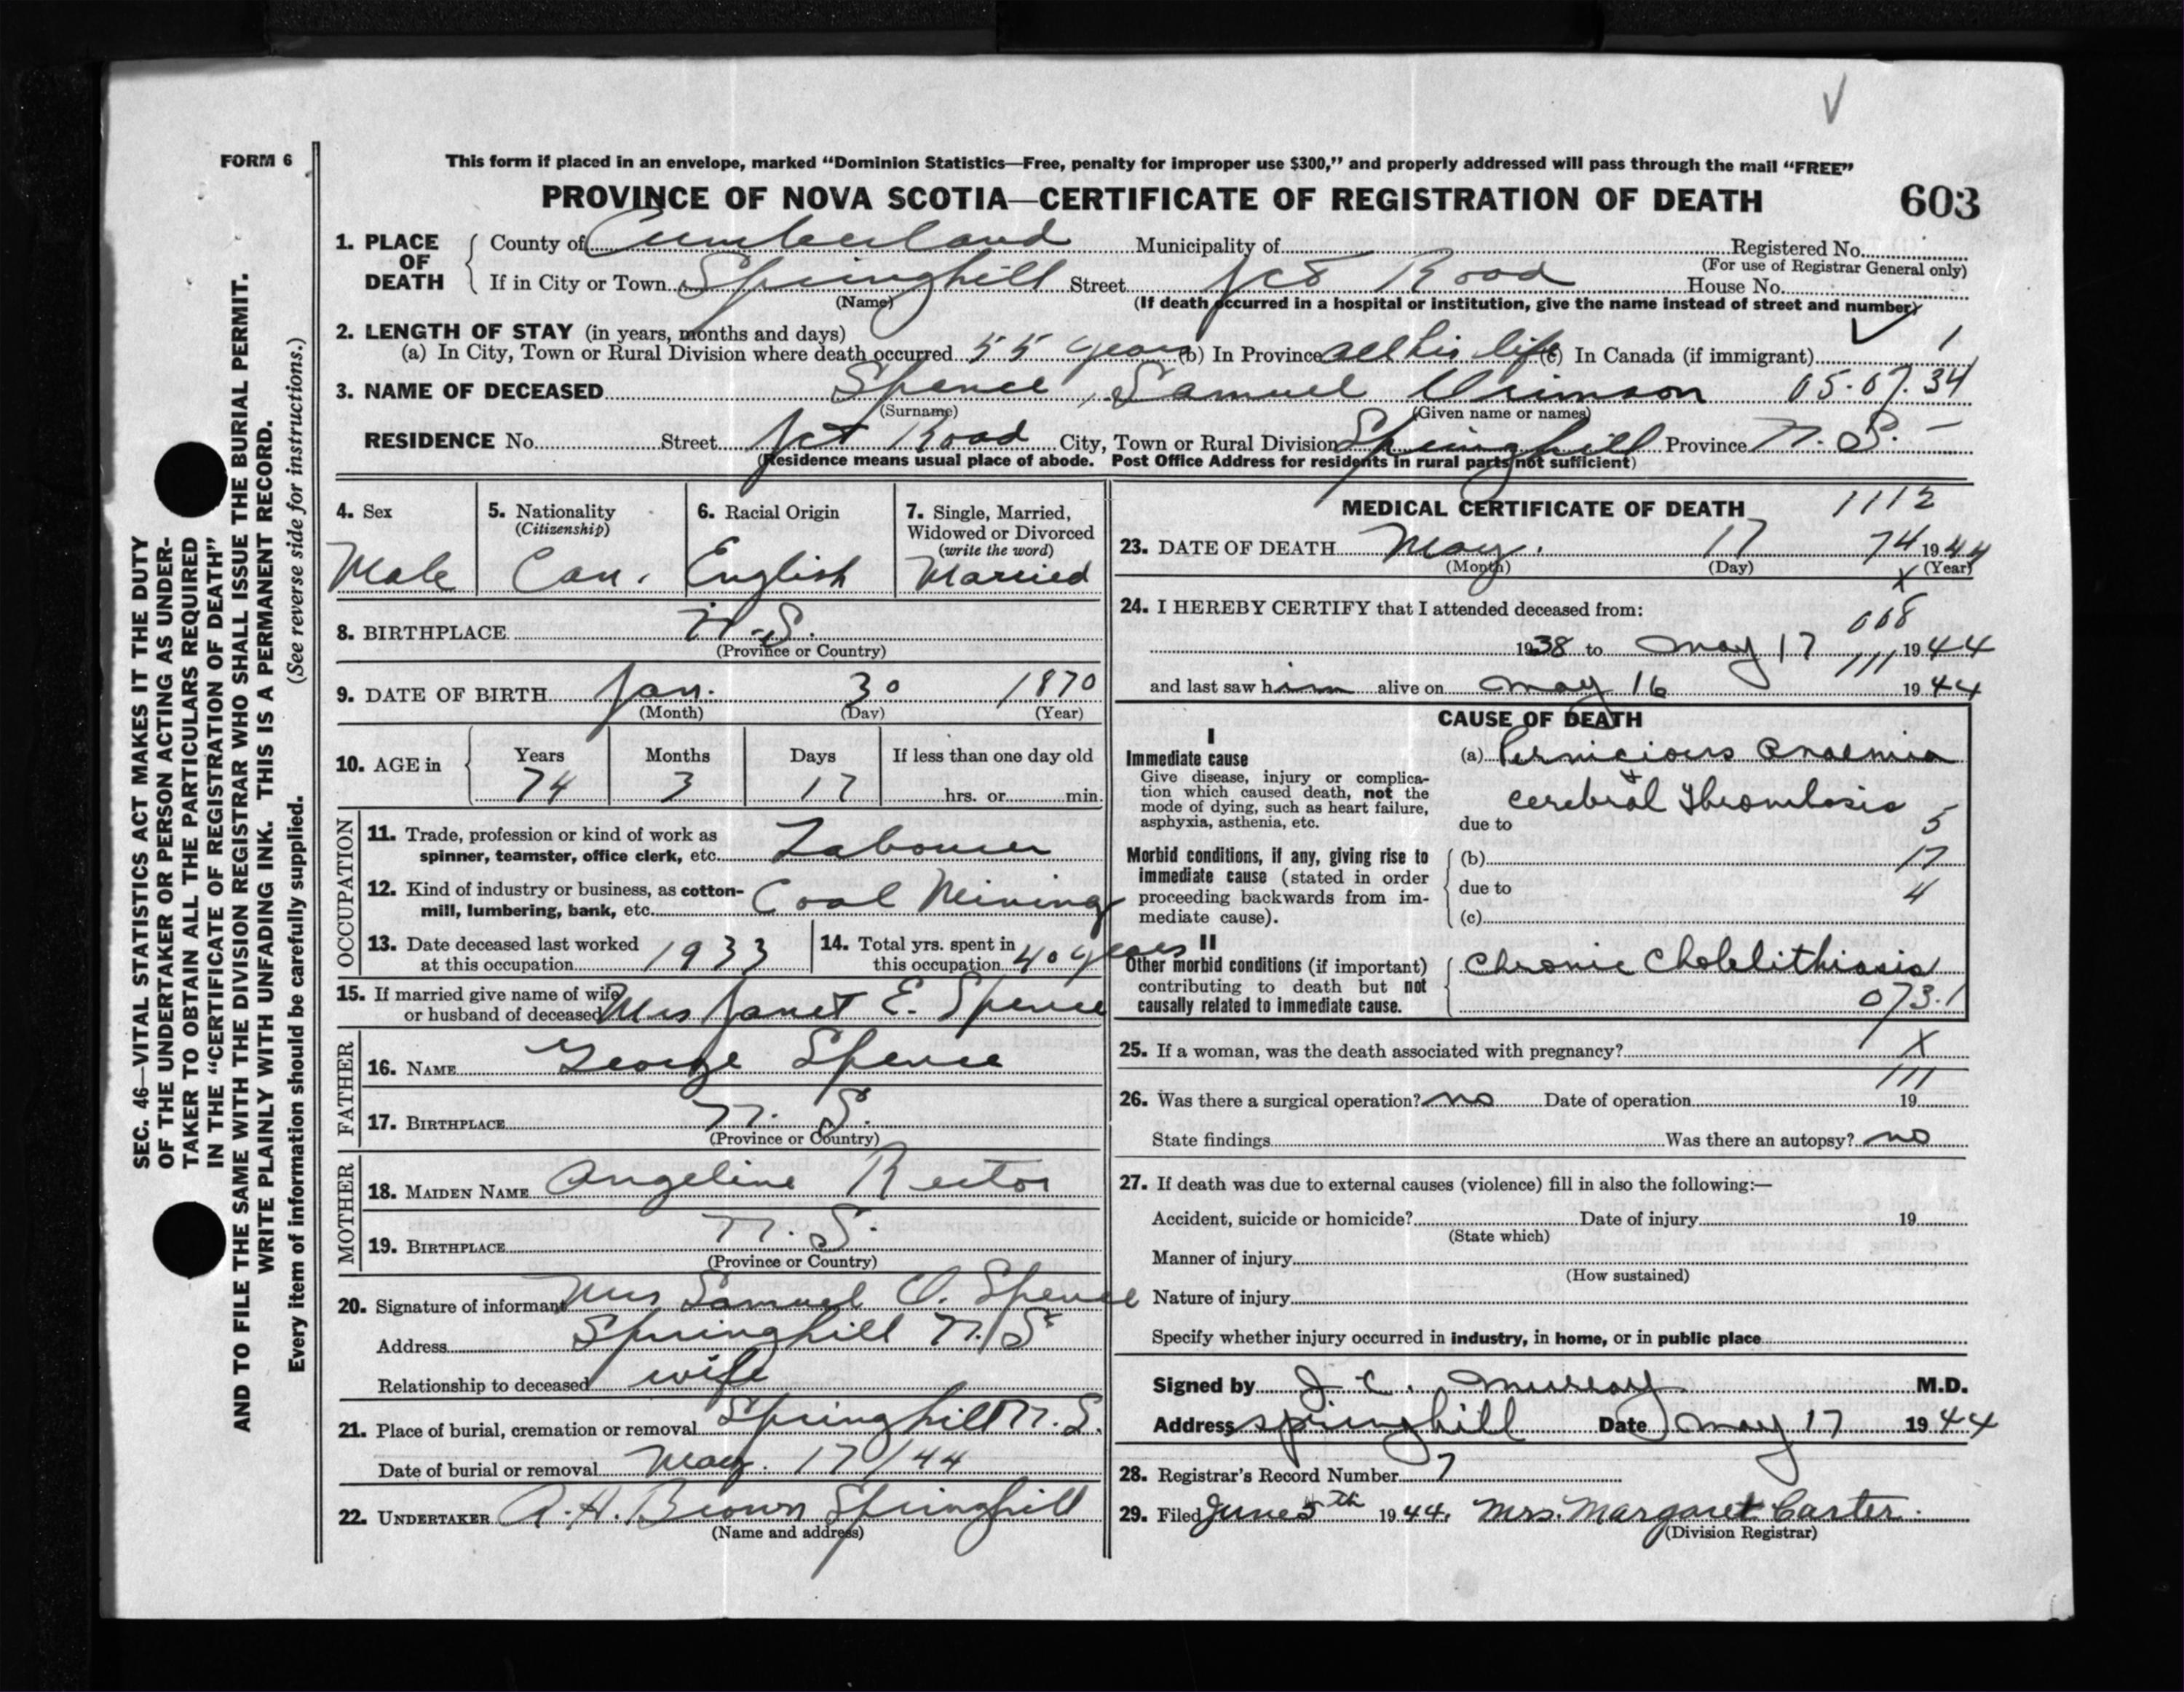 FORM 6
This form if placed in an envelope, marked “Dominion Statistics—Free, penalty for improper use $300,” and properly addressed will pass through the mail “FREE”
PROVINCE OF NOVA SCOTIA—CERTIFICATE OF REGISTRATION OF DEATH 603
1. PLACE OF DEATH County of Cumberland Municipality of Registered No.
(For use of Registrar General only)
If in City or Town Springhill Street Jct Road House No.
(Name) (If death occurred in a hospital or institution, give the name instead of street and number)
2. LENGTH OF STAY (in years, months and days)
(a) In City, Town or Rural Division where death occurred 55 years (b) In Province all his life (c) In Canada (if immigrant) 1
3. NAME OF DECEASED Spence, Samuel 05.07.34
(Surname) (Given name or names)
RESIDENCE No. Street Jct Road City, Town or Rural Division Springhill Province N.S.
(Residence means usual place of abode. Post Office Address for residents in rural parts not sufficient)
4. Sex
Male
5. Nationality
(Citizenship)
Can.
6. Racial Origin
English
7. Single, Married,
Widowed or Divorced
(write the word)
Married
8. BIRTHPLACE N.S.
(Province or Country)
9. DATE OF BIRTH Jan. 30 1870
(Month) (Day) (Year)
10. AGE in Years Months Days If less than one day old
74 3 17 hrs. or min.
OCCUPATION
11. Trade, profession or kind of work as
spinner, teamster, office clerk, etc. Labourer
12. Kind of industry or business, as cotton-
mill, lumbering, bank, etc. Coal Mining
13. Date deceased last worked
at this occupation 1933
14. Total yrs. spent in
this occupation 40 years
15. If married give name of wife
or husband of deceased Mrs Janet E. Spence
FATHER
16. NAME George Spence
17. BIRTHPLACE N. S.
(Province or Country)
MOTHER
18. MAIDEN NAME Angeline Rector
19. BIRTHPLACE N. S.
(Province or Country)
20. Signature of informant Mrs Samuel O. Spence
Address Springhill N.S
Relationship to deceased wife
21. Place of burial, cremation or removal Springhill N.S.
Date of burial or removal May. 17/44
22. UNDERTAKER A.H. Brown Springhill
(Name and address)
MEDICAL CERTIFICATE OF DEATH 1112
23. DATE OF DEATH May. 17 74 1944
(Month) (Day) (Year)
X
24. I HEREBY CERTIFY that I attended deceased from:
008
1938 to May 17 1944
111
and last saw him alive on May 16 1944
CAUSE OF DEATH
I
Immediate cause
Give disease, injury or complica-
tion which caused death, not the
mode of dying, such as heart failure,
asphyxia, asthenia, etc.
(a) Pernicious Anaemia
+
cerebral Thrombosis
due to 5
Morbid conditions, if any, giving rise to
immediate cause (stated in order
proceeding backwards from im-
mediate cause).
(b) 17
due to 4
(c)
II
Other morbid conditions (if important)
contributing to death but not
causally related to immediate cause.
Chronic Cholelithiasis
073.1
25. If a woman, was the death associated with pregnancy? X
111
26. Was there a surgical operation? no Date of operation 19
State findings Was there an autopsy? no
27. If death was due to external causes (violence) fill in also the following:—
Accident, suicide or homicide? Date of injury 19
(State which)
Manner of injury
(How sustained)
Nature of injury
Specify whether injury occurred in industry, in home, or in public place
Signed by J. C. Murray M.D.
Address Springhill Date May 17 1944
28. Registrar's Record Number 7
29. Filed June 5th 1944. Mrs. Margaret Carter.
(Division Registrar)
SEC. 46—VITAL STATISTICS ACT MAKES IT THE DUTY
OF THE UNDERTAKER OR PERSON ACTING AS UNDER-
TAKER TO OBTAIN ALL THE PARTICULARS REQUIRED
IN THE “CERTIFICATE OF REGISTRATION OF DEATH”
AND TO FILE THE SAME WITH THE DIVISION REGISTRAR WHO SHALL ISSUE THE BURIAL PERMIT.
WRITE PLAINLY WITH UNFADING INK. THIS IS A PERMANENT RECORD.
Every item of information should be carefully supplied. (See reverse side for instructions.)